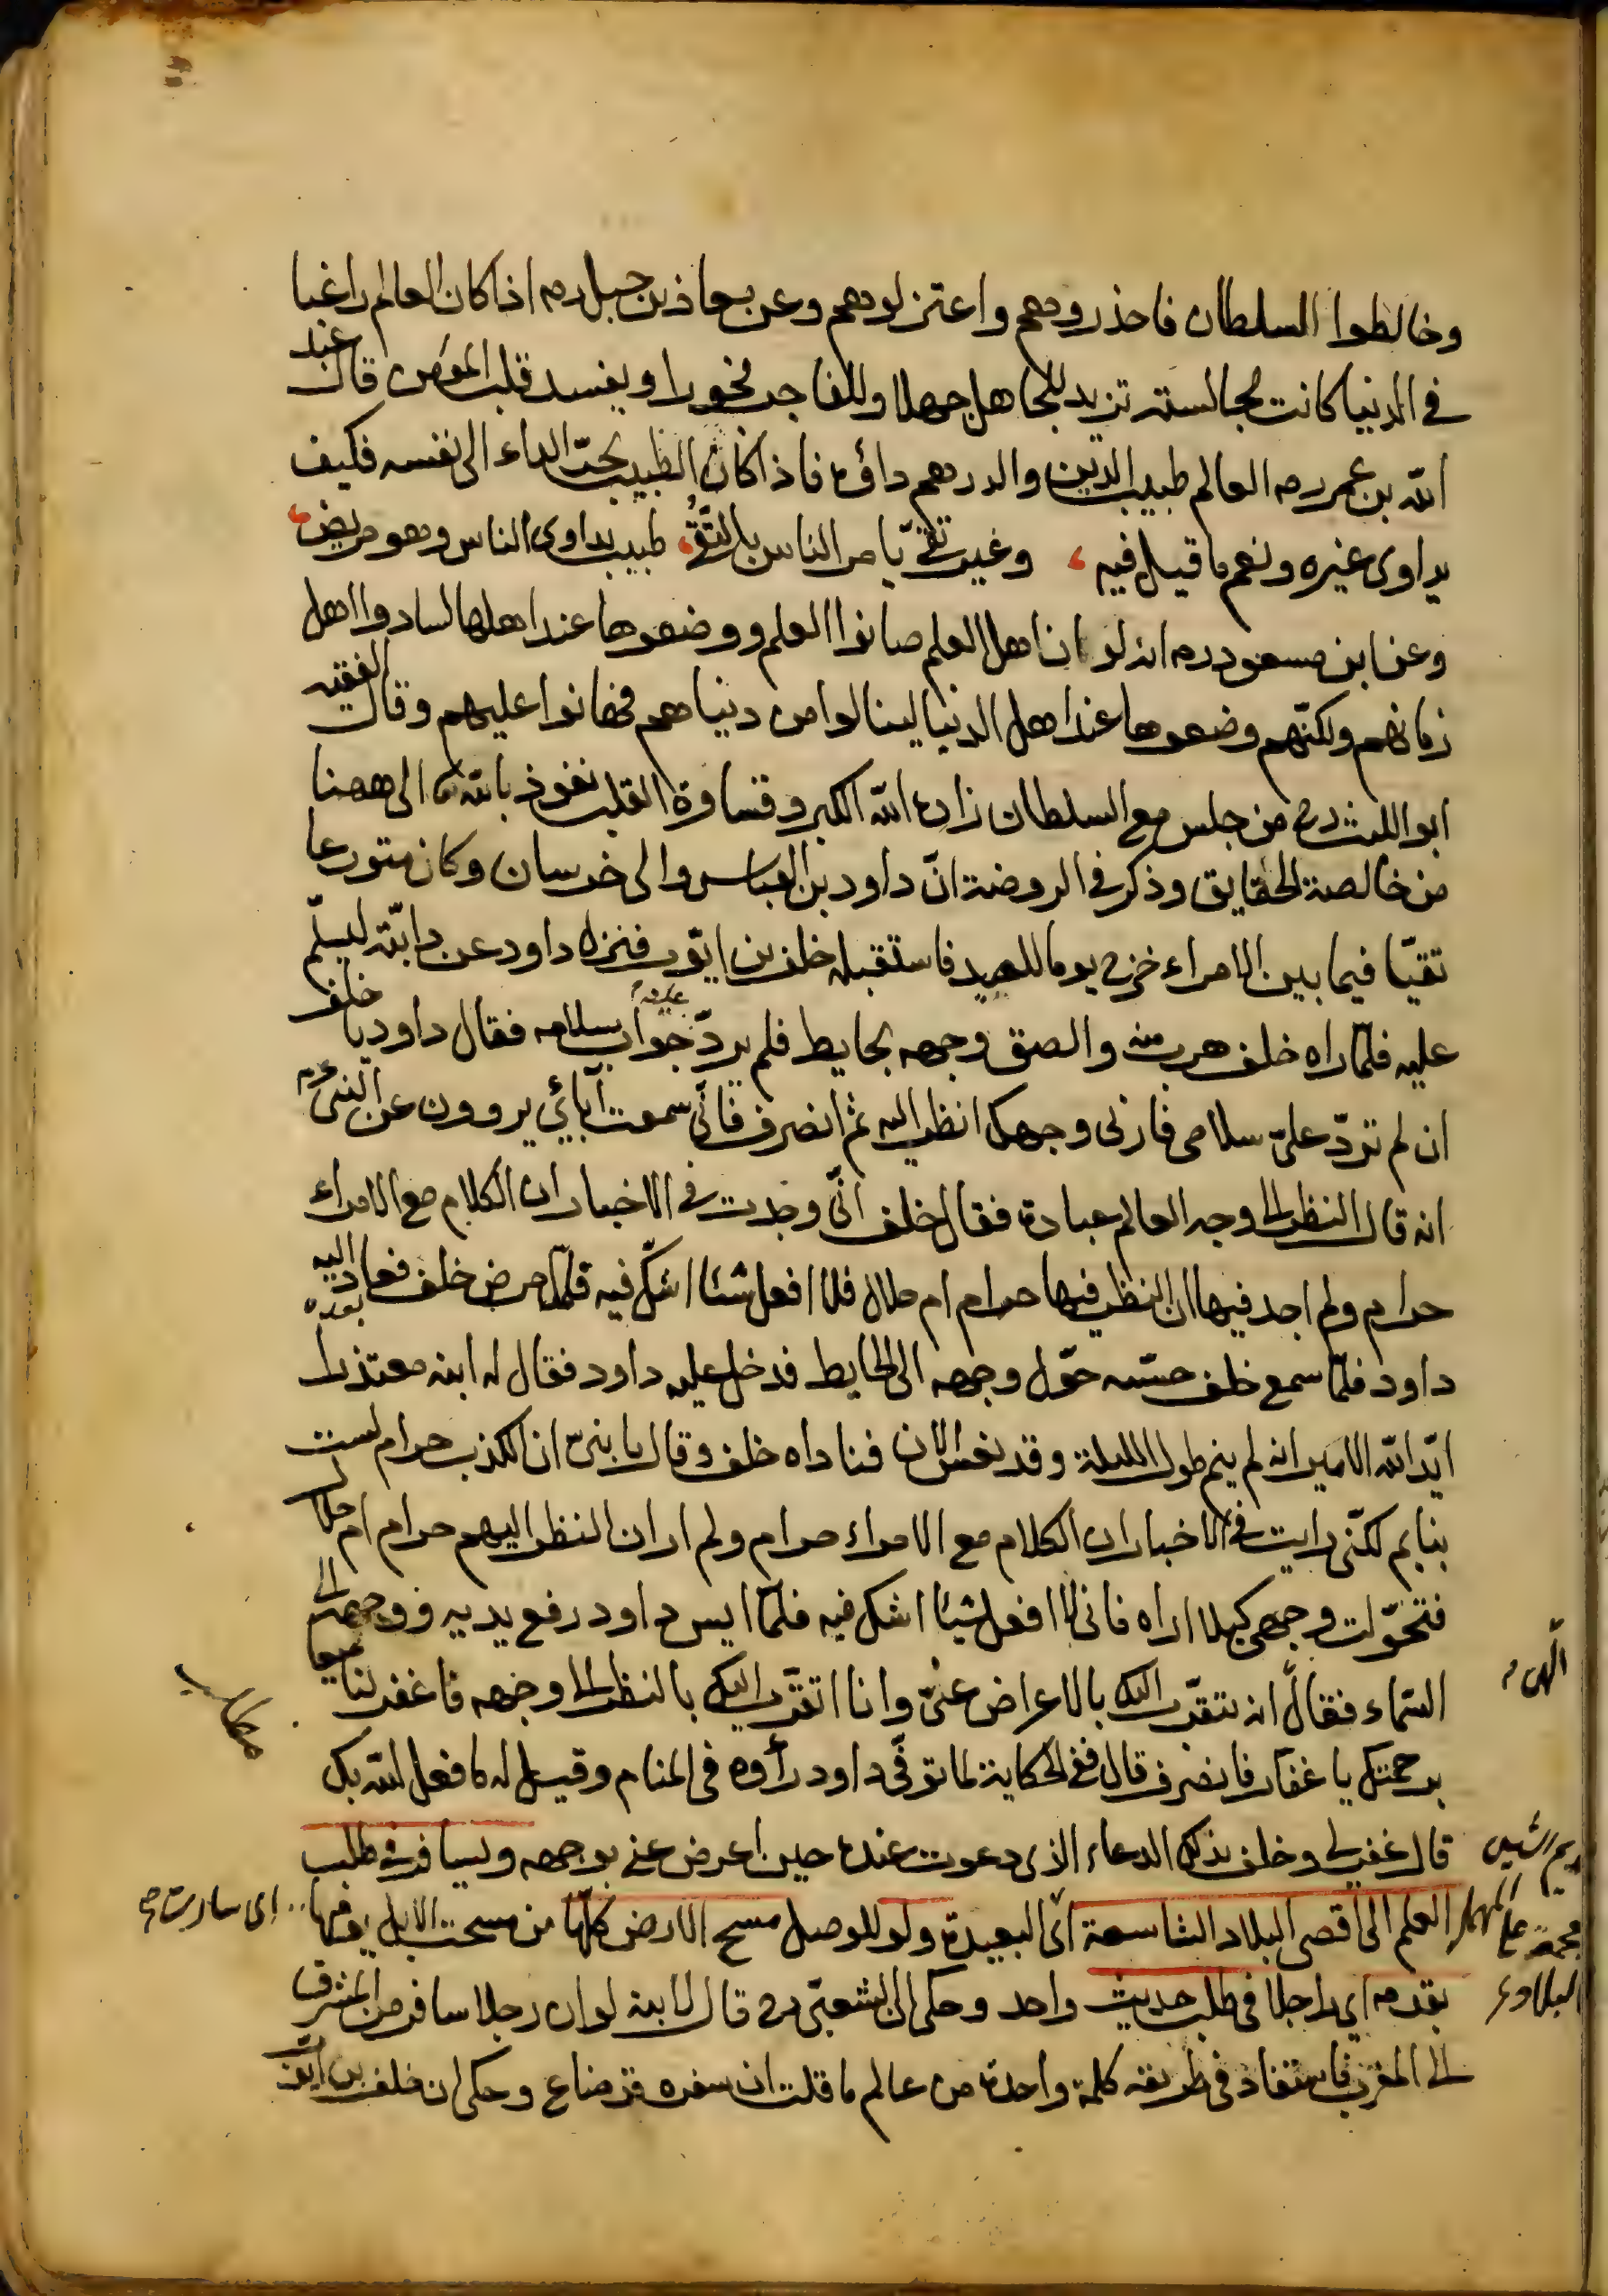 وخالطوا السلطان فاحذروهم واعتزلوهم وعن معاذ بن جبل رم اذا كان العالم راغبا
في الدنيا كانت مجالسته تزيد للجاهل جهلا وللفاجر فجورا ويفسد قلب المؤمن قال عبد
الله بن عمر رم العالم طبيب الدين والدرهم داؤه فاذا كان الطبيب يجر الداء الى نفسه فكيف
يداوى غيره ونعم ما قيل فيه ، وغير تقي يامر الناس بالتقى ، طبيب يداوى الناس وهو مريض ،
وعن ابن مسعود رم انه لو ان اهل العلم صانوا العلم ووضعوها عند اهلها لسادوا اهل
زمانهم ولكنهم وضعوها عند اهل الدنيا لينالوا من دنياهم فهانوا عليهم وقال الفقيه
ابو الليث رح من جلس مع السلطان زاده الله الكبر وقساوة القلب نعوذ بالله الى ههنا
من خالصة الحقايق وذكر في الروضة ان داود بن العباس والى خرسان وكان متورعا
تقيا فيما بين الامراء خرج يوما للصيد فاستقبله خلف بن ايوب فنزل داود عن دابته ليسلم
عليه فلما راه خلف هرب منه والصق وجهه بحايط فلم يرد جواب سلامه فقال داود يا خلف
ان لم ترد على سلامى فارنى وجهك انظر اليه ثم انصرف فانى سمعت آبائي يروون عن النبى عم
انه قال النظر الى وجه العالم عبادة فقال خلف انى وجدت في الاخبار ان الكلام مع الامراء
حرام ولم اجد فيها ان النظر فيها حرام ام حلال فلا افعل شئا اشك فيه فلما مرض خلف فعاد اليه
بعده
داود فلما سمع خلف حسه حول وجهه الى الحايط فدخل عليه داود فقال له ابنه معتذرا
ايد الله الامير انه لم ينم طول الليلة وقد نعس الان فناداه خلف وقال يا بنى ان الكذب حرام لست
بنايم لكنى رايت في الاخبار ان الكلام مع الامراء حرام ولم ار ان النظر اليهم حرام ام حلال
فتحولت وجهى كيلا اراه فانى لا افعل شيئا اشك فيه فلما ايس داود رفع يديه ووجهه الى
السماء فقال انه يتقرب اليك بالاعراض عنى وانا اتقرب اليك بالنظر الى وجهه فاغفر لنا جميعا
الهى
برحمتك يا غفار فانصرف قال ففى الحكاية لما توفى داود رأوه فى المنام وقيل له ما فعل الله بك
قال غفر لى وخلف بذلك الدعاء الذى دعوت عنده حين اعرض عنى بوجهه ويسافر في طلب
العلم الى اقصى البلاد الشاسعة اى البعيدة ولو للوصل مسح الارض كلها من مسحت الابل يومها اى سارت
بقدمه اى راجلا فى طلب حديث واحد وحكى ان الشعبى رح قال لابنه لو ان رجلا سافر من المشرق
الى المغرب فاستفاد فى طريقه كلمة واحدة من عالم ما قلت ان سفره قد ضاع وحكى ان خلف بن ايوب